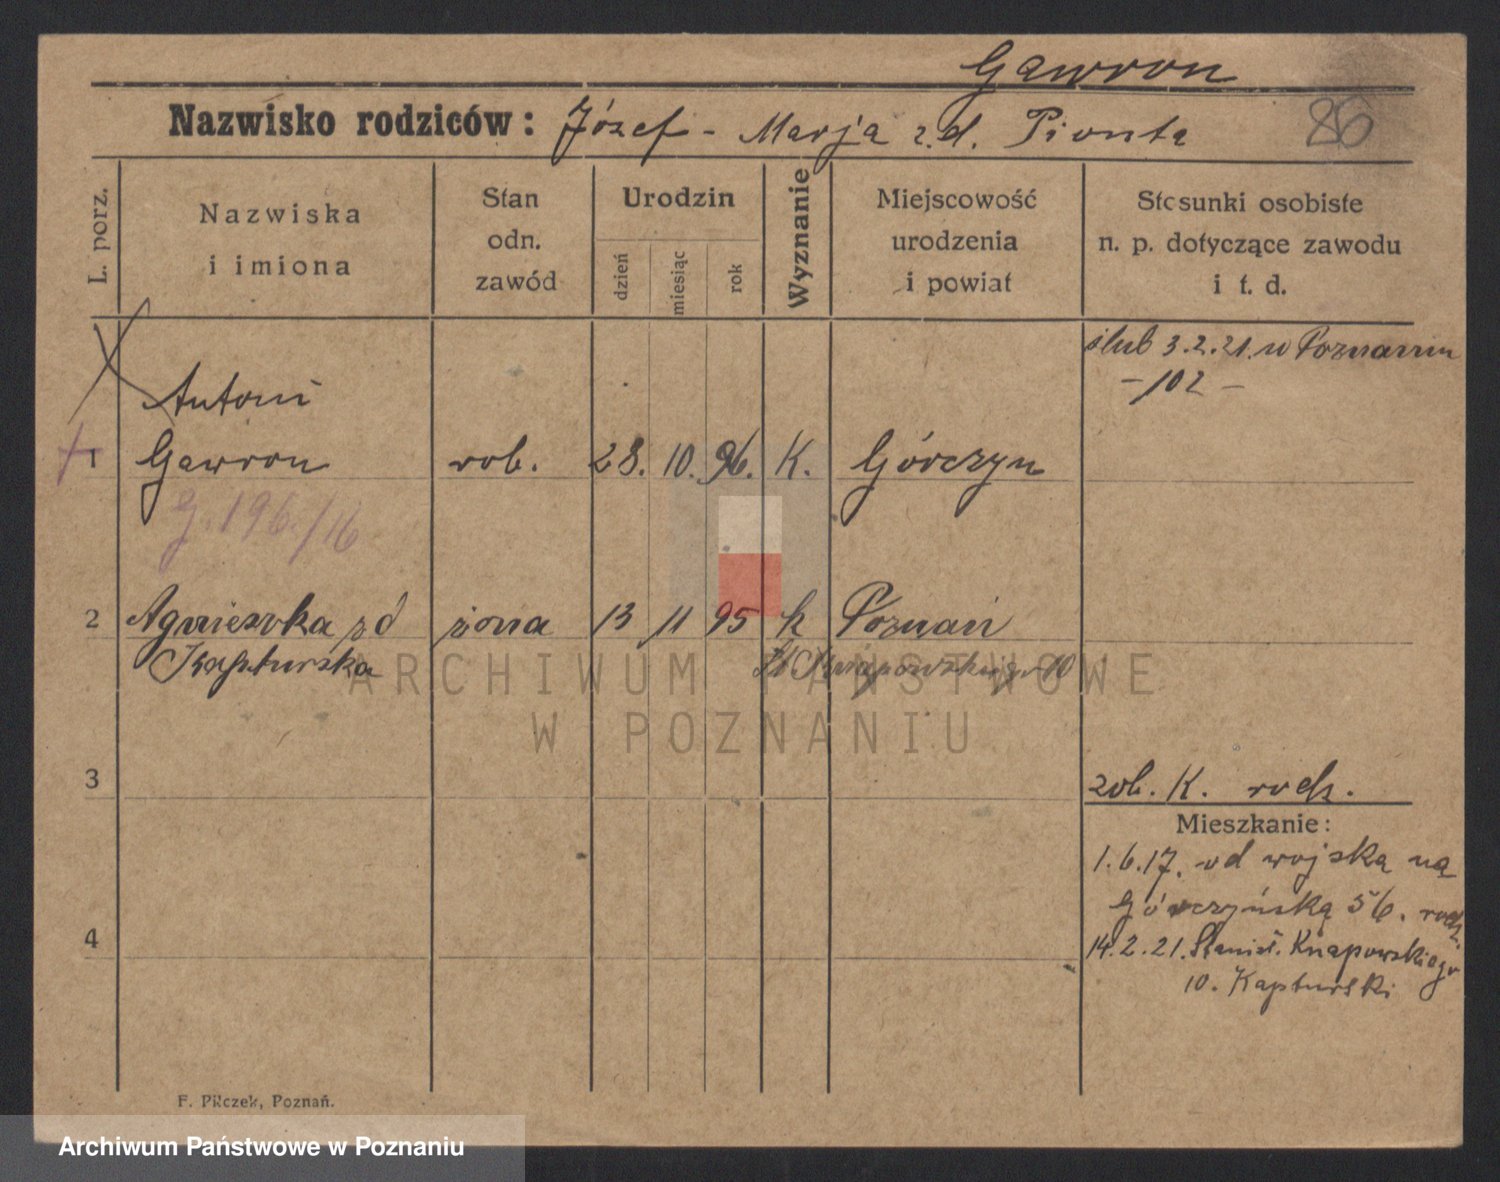 Gawron
Nazwisko rodziców: Józef - Marja z.d. Pionta
86
L. porz.
Nazwiska
i imiona
Stan
odn.
zawód
Urodzin
dzień
miesiąc
rok
Wyznanie
Miejscowość
urodzenia
i powiat
Stosunki osobiste
n. p. dotyczące zawodu
i t. d.
ślub 3.2.21. w Poznaniu
-102-
Antoni
1 Gawron rob. 28. 10. 96. K. Górczyn
G. 196./16
2 Agnieszka zd żona 13 11 95 k Poznań
Kapturska
St. Knapowskiego 10
ARCHIWUM PAŃSTWOWE
W POZNANIU
3
zob. K. rodz.
Mieszkanie:
1.6.17. od wojska na
Górczyńską 56. rodz.
4
14.2.21. Stanisł. Knapowskiego
10. Kapturski
F. Pilczek, Poznań.
Archiwum Państwowe w Poznaniu